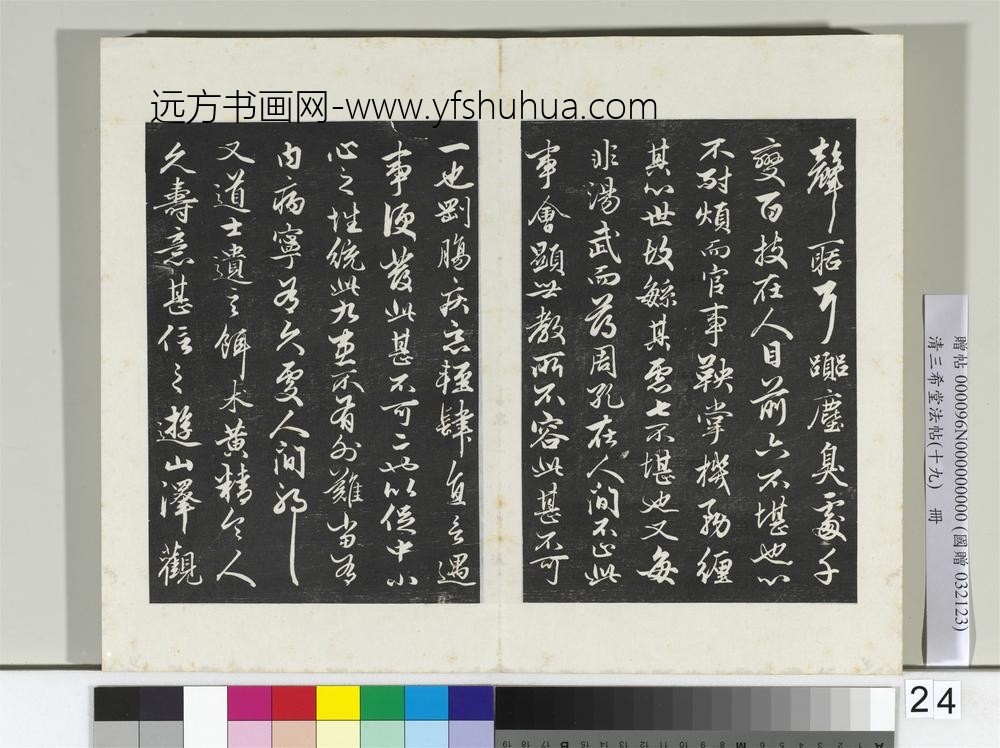 远方书画网-www.yfshuhua.com
聲聒耳囂塵臭處千
變百技在人目前六不堪也心
不耐煩而官事鞅掌機務纏
其心世故繁其慮七不堪也又每
非湯武而薄周孔在人間不止此
事會顯世教所不容此甚不可
一也剛腸疾惡輕肆直言遇
事便發此甚不可二也以促中小
心之性統此九患不有外難當有
內病寧可久處人間耶
又道士遺言餌朮黃精令人
久壽意甚信之遊山澤觀
贈帖 000096N000000000 (國贈 032123)
清三希堂法帖(十九) 冊
24